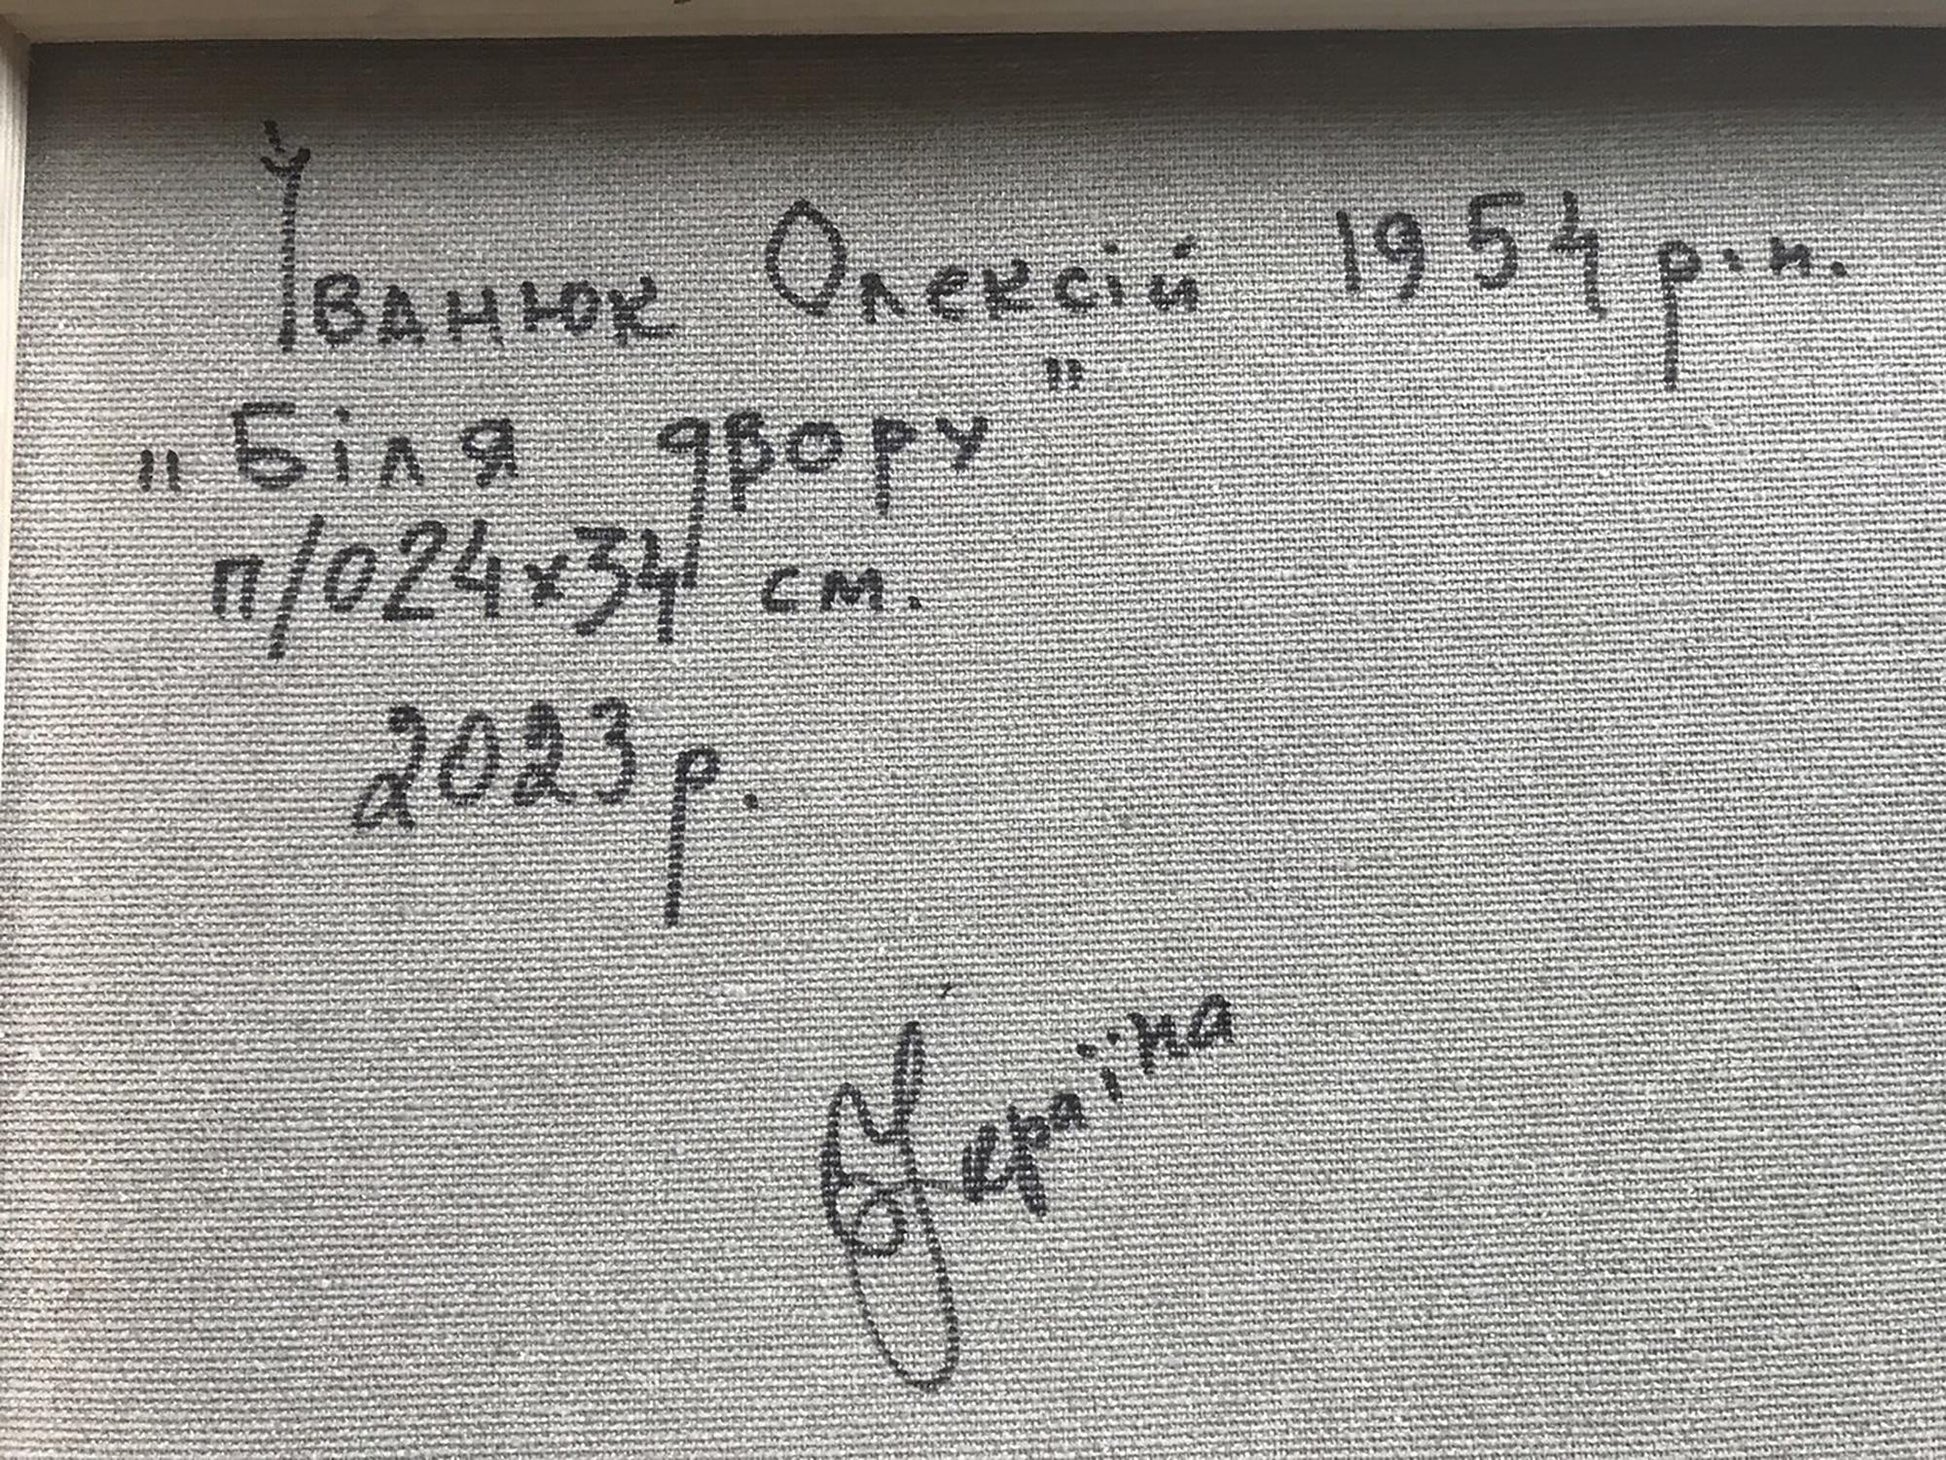 Іванюк Олексій 1954 р.н.
"Біля двору"
п/о 24х34 см.
2023 р.
Україна